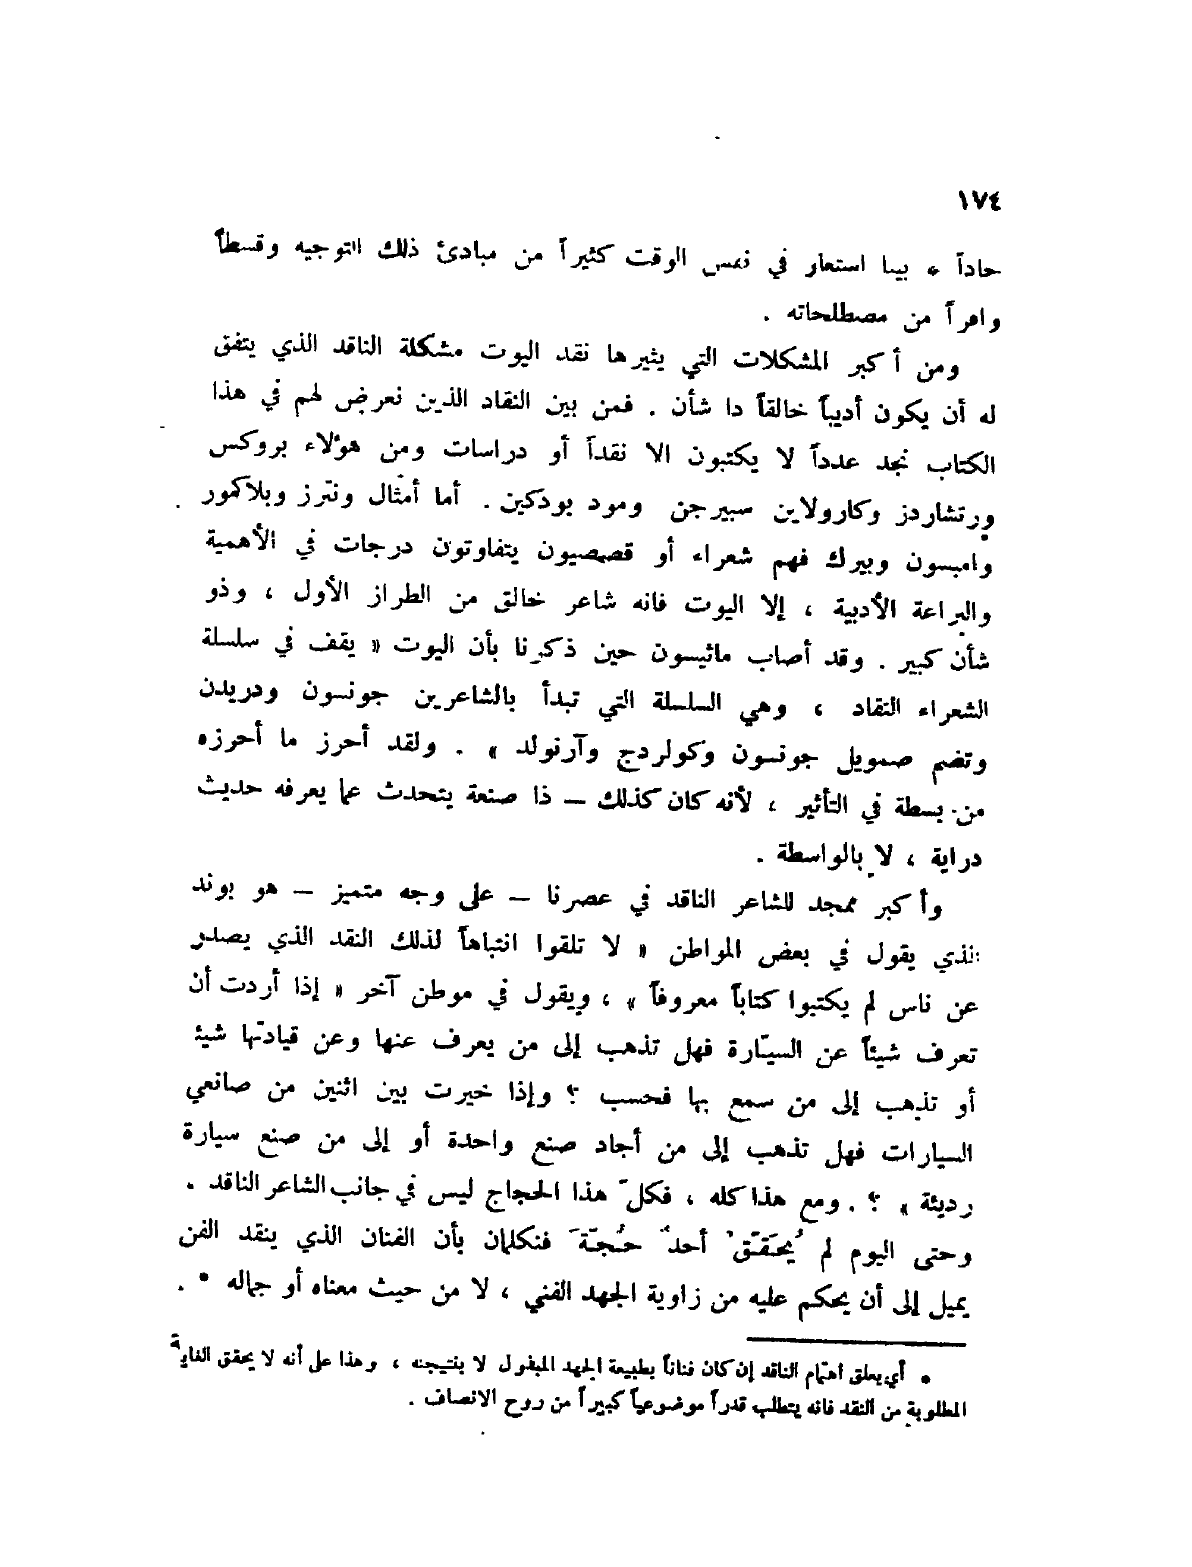 ١٧٤
حاداً ، بينا استعار في نفس الوقت كثيراً من مبادئ ذلك التوجيه وقسطاً
وافراً من مصطلحاته .
ومن أكبر المشكلات التي يثيرها نقد اليوت مشكلة الناقد الذي يتفق
له أن يكون أديباً خالقاً ذا شأن . فمن بين النقاد الذين نعرض لهم في هذا
الكتاب نجد عدداً لا يكتبون الا نقداً أو دراسات ومن هؤلاء بروكس
ورتشاردز وكارولاين سبيرجن ومود بودكين . أما أمثال ونترز وبلاكمور
وامبسون وبيرك فهم شعراء أو قصصيون يتفاوتون درجات في الأهمية
والبراعة الأدبية ، إلا اليوت فانه شاعر خالق من الطراز الأول ، وذو
شأن كبير . وقد أصاب ماثيسون حين ذكرنا بأن اليوت « يقف في سلسلة
الشعراء النقاد ، وهي السلسلة التي تبدأ بالشاعرين جونسون ودريدن
وتضم صمويل جونسون وكولردج وآرنولد » . ولقد أحرز ما أحرزه
من بسطة في التأثير ، لأنه كان كذلك – ذا صنعة يتحدث عما يعرفه حديث
دراية ، لا بالواسطة .
وأكبر ممجد للشاعر الناقد في عصرنا – على وجه متميز – هو بوند
الذي يقول في بعض المواطن « لا تلقوا انتباهاً لذلك النقد الذي يصدر
عن ناس لم يكتبوا كتاباً معروفاً » ، ويقول في موطن آخر « إذا أردت أن
تعرف شيئاً عن السيّارة فهل تذهب إلى من يعرف عنها وعن قيادتها شيئ
أو تذهب إلى من سمع بها فحسب ؟ وإذا خيرت بين اثنين من صانعي
السيارات فهل تذهب إلى من أجاد صنع واحدة أو إلى من صنع سيارة
رديئة » ؟ . ومع هذا كله ، فكلّ هذا الحجاج ليس في جانب الشاعر الناقد .
وحتى اليوم لم يُحَقّقْ أحدٌ حُجّةَ فنكلمان بأن الفنان الذي ينقد الفن
يميل إلى أن يحكم عليه من زاوية الجهد الفني ، لا من حيث معناه أو جماله * .
* أي يعلق اهتمام الناقد إن كان فناناً بطبيعة الجهد المبذول لا بنتيجته ، وهذا على أنه لا يحقق الغاية
المطلوبة من النقد فانه يتطلب قدراً موضوعياً كبيراً من روح الانصاف .